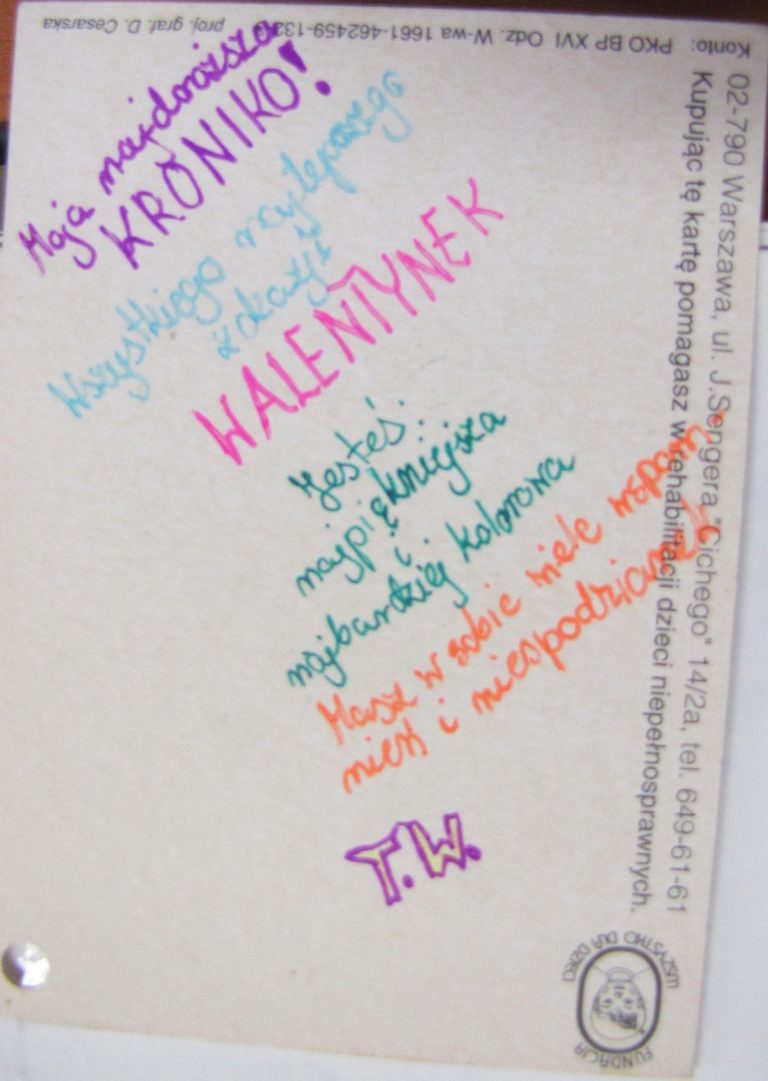 Maja najdroższa
KRONIKO!
Wszystkiego najlepszego
z okazji
WALENTYNEK
Jesteś:
najpiękniejsza
i
najbardziej kolorowa
Masz w sobie wiele wspom-
nień i niespodzianek
T.W.
02-790 Warszawa, ul. J.Sengera "Cichego" 14/2a, tel. 649-61-61
Kupując tę kartę pomagasz w rehabilitacji dzieci niepełnosprawnych.
Konto: PKO BP XVI Odz. W-wa 1661-462459-132
proj. graf. D. Cesarska
FUNDACJA
WSZYSTKO DLA DZIECI